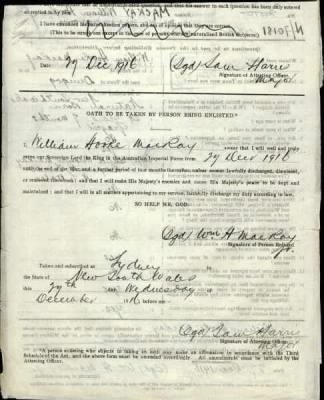 replied to by him.
I have examined his naturalization papers, and am of opinion that they are correct.
(This to be carried out except in case of person naturalized British Subjects.)
Date 29 Dec 1916
(Sgd)
Signature of Attesting Officer.
Major
OATH TO BE TAKEN BY PERSON BEING ENLISTED.*
I, William Hooke MacKay swear that I will well and truly
serve our Sovereign Lord the King in the Australian Imperial Force from 29 Dec 1916
until the end of the War, and a further period of four months thereafter unless sooner lawfully discharged, dismissed,
or removed therefrom; and that I will resist His Majesty's enemies and cause His Majesty's peace to be kept and
maintained; and that I will in all matters appertaining to my service, faithfully discharge my duty according to law.
SO HELP ME, GOD.
(Sgd) Wm H MacKay
Signature of Person Enlisted.
Taken and subscribed at Sydney
the State of New South Wales
this 29th day Wednesday
December 1916, before me—
(Sgd)
Signature of Attesting Officer.
Major
*A person enlisting who objects to taking an oath may make an affirmation in accordance with the Third
Schedule of the Act, and the above form must be amended accordingly. All amendments must be initialed by the
Attesting Officer.